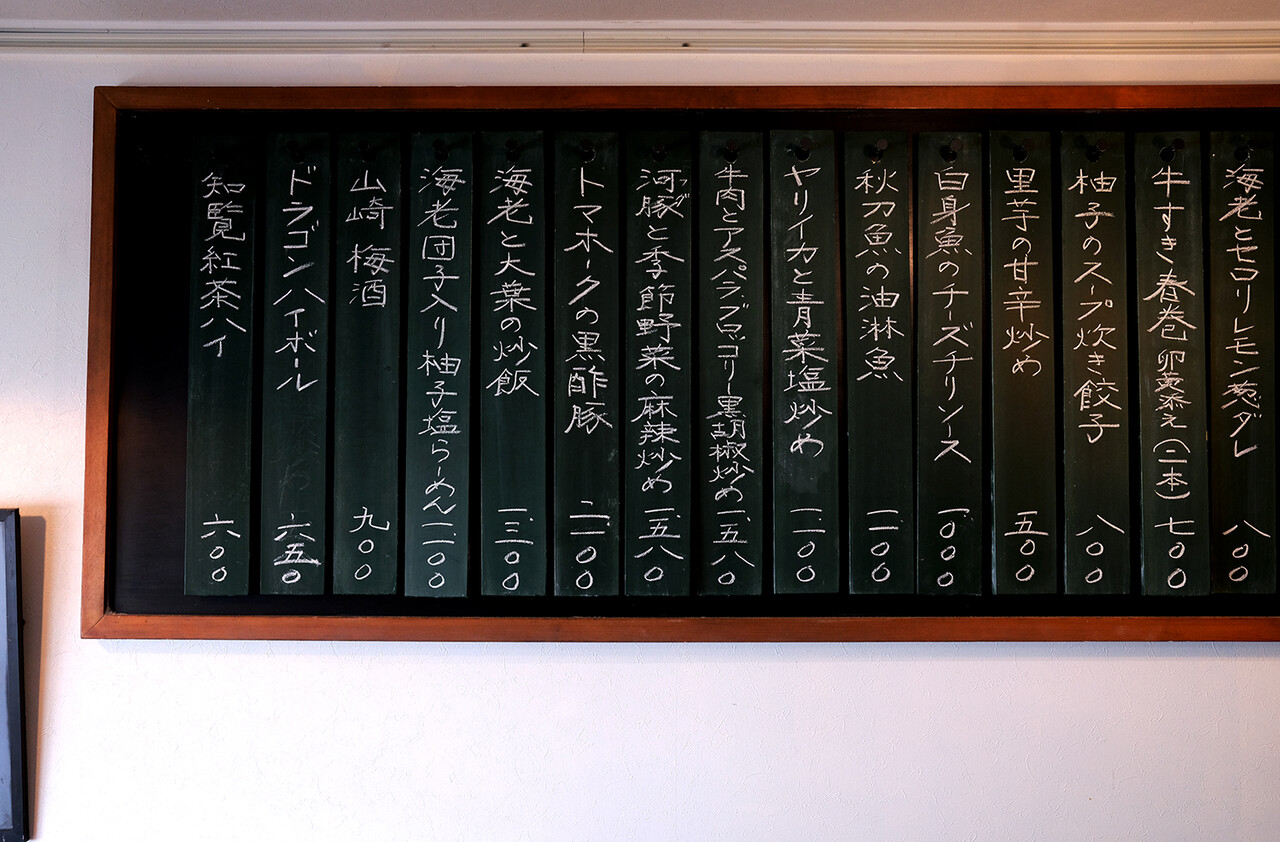 海老とセロリレモン葱ダレ 八〇〇
牛すき春巻 卵黄添え(二本) 七〇〇
柚子のスープ炊き餃子 八〇〇
里芋の甘辛炒め 五〇〇
白身魚のチーズチリソース 一、〇〇〇
秋刀魚の油淋魚 一、一〇〇
ヤリイカと青菜塩炒め 一、二〇〇
牛肉とアスパラ、ブロッコリー黒胡椒炒め 一、五八〇
河豚と季節野菜の麻辣炒め 一、五八〇
フグ
トマホークの黒酢豚 二、一〇〇
海老と大葉の炒飯 一、三〇〇
海老団子入り柚子塩らーめん 一、二〇〇
山崎 梅酒 九〇〇
ドラゴンハイボール 六五〇
知覧紅茶ハイ 六〇〇